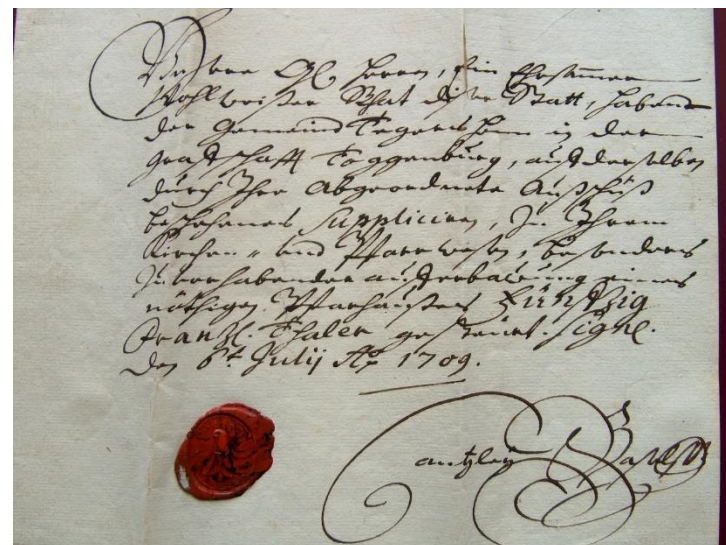 Unsere Gl. Herren, Ein Ehrsammer
Wohlweiser Raht diser Statt, habend
der Gemeind Tegerschen in der
Graffschafft Toggenburg, auf derselben
durch Ihre Abgeordnete Außschüß
beschehenes Suppliciren, In Ihrem
Kirchen- und Pfarrwesen, besonders
zu vorhabender aufferbauung eines
nöthigen Pfarrhauses Füntzig
Franz. Thaler gesteurt. Sign.
Den 6t. Julij Ao. 1709.
Cantzley Basel